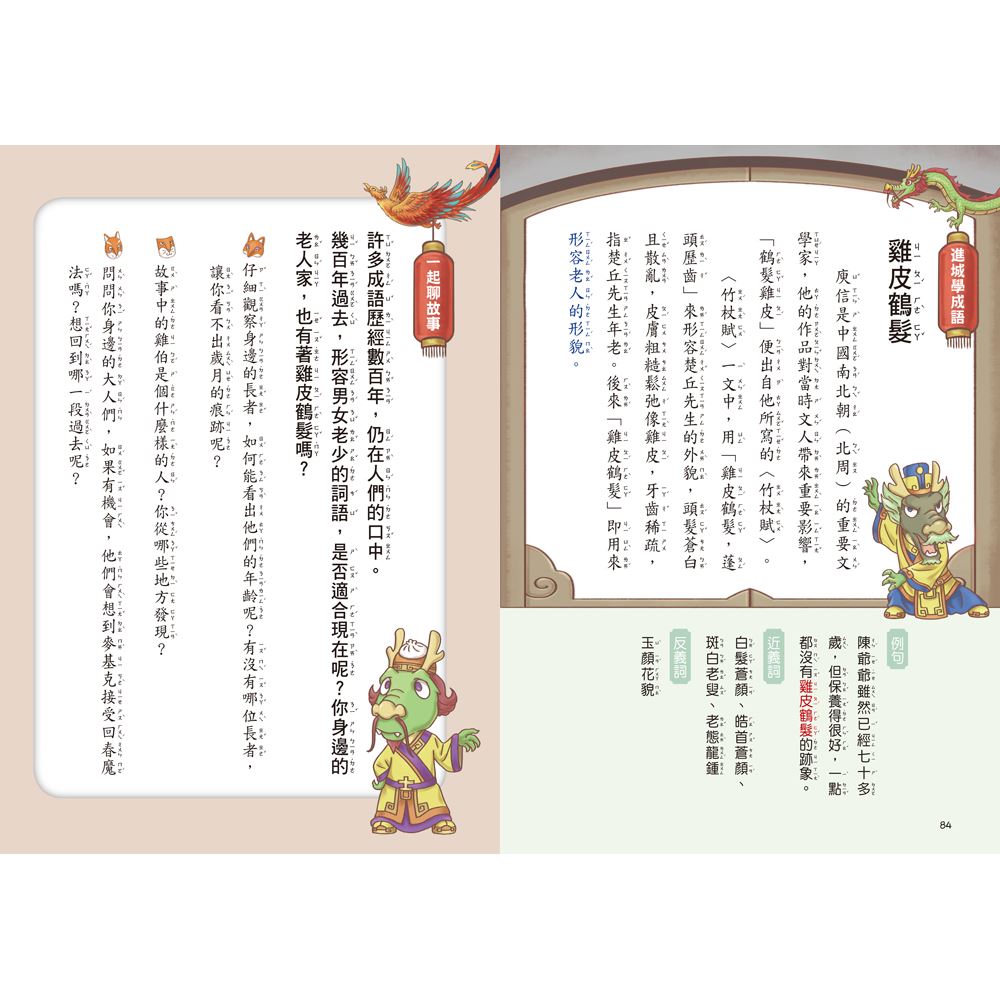 進城學成語
雞皮鶴髮
庾信是中國南北朝（北周）的重要文
學家，他的作品對當時文人帶來重要影響，
「鶴髮雞皮」便出自他所寫的〈竹杖賦〉。
〈竹杖賦〉一文中，用「雞皮鶴髮，蓬
頭歷齒」來形容楚丘先生的外貌，頭髮蒼白
且散亂，皮膚粗糙鬆弛像雞皮，牙齒稀疏，
指楚丘先生年老。後來「雞皮鶴髮」即用來
形容老人的形貌。
例句
陳爺爺雖然已經七十多
歲，但保養得很好，一點
都沒有雞皮鶴髮的跡象。
近義詞
白髮蒼顏、皓首蒼顏、
斑白老叟、老態龍鍾
反義詞
玉顏花貌
84
一起聊故事
許多成語歷經數百年，仍在人們的口中。
幾百年過去，形容男女老少的詞語，是否適合現在呢？你身邊的
老人家，也有著雞皮鶴髮嗎？
仔細觀察身邊的長者，如何能看出他們的年齡呢？有沒有哪位長者，
讓你看不出歲月的痕跡呢？
故事中的雞伯是個什麼樣的人？你從哪些地方發現？
問問你身邊的大人們，如果有機會，他們會想到麥基克接受回春魔
法嗎？想回到哪一段過去呢？